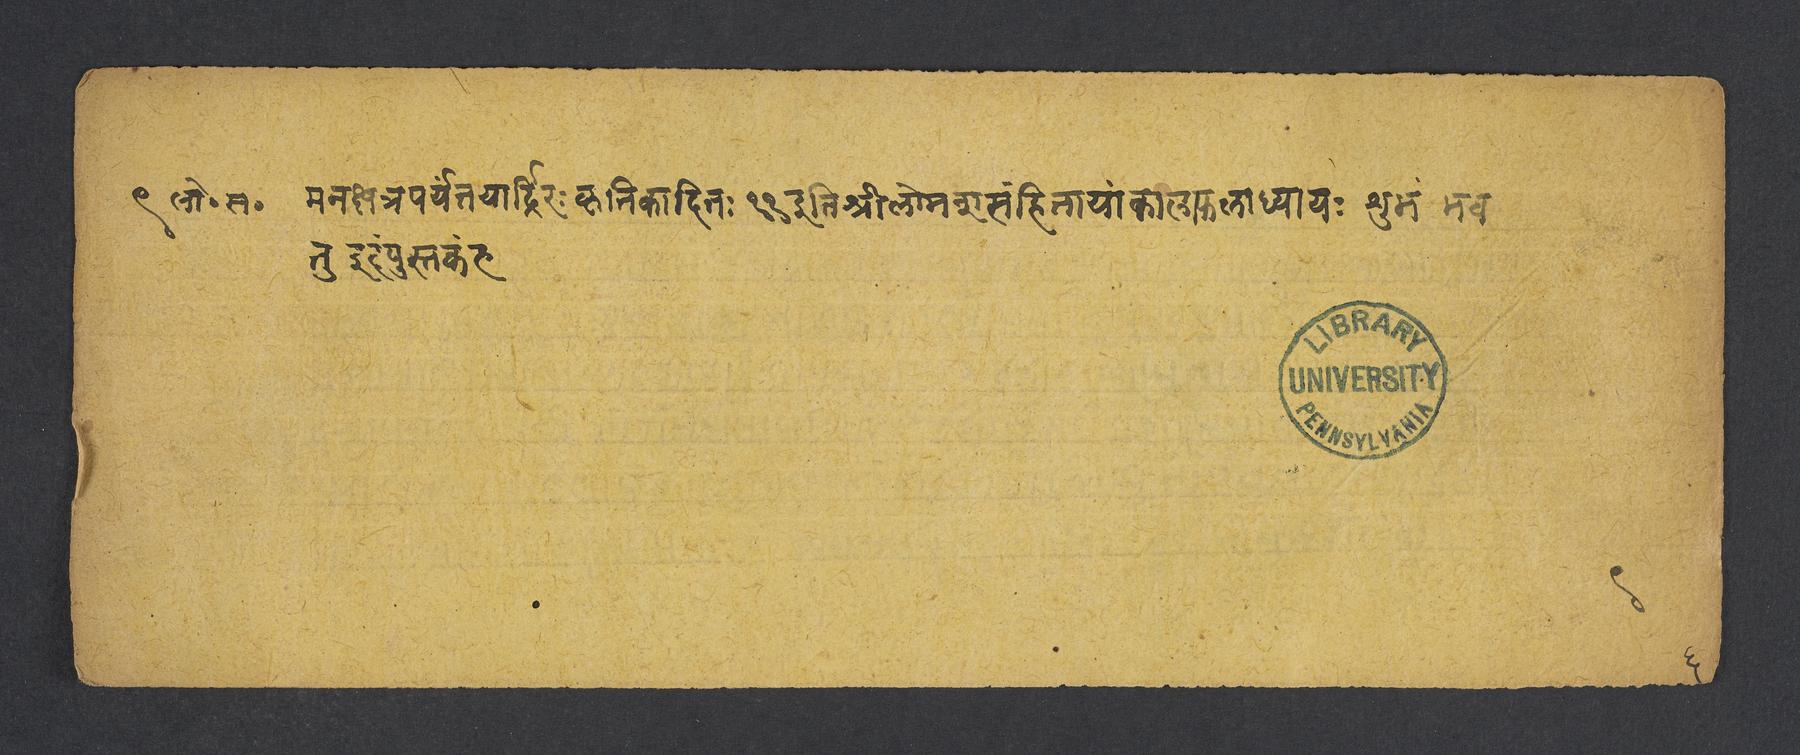 ९ लो॰ स॰ मनक्षत्रपर्यंतयार्द्विरः कृतिकादितः ११ इति श्रीलोमशसंहितायांकालफलाध्यायः शुभं भव
तु इदंपुस्तकंह
LIBRARY
UNIVERSITY
PENNSYLVANIA
९
६